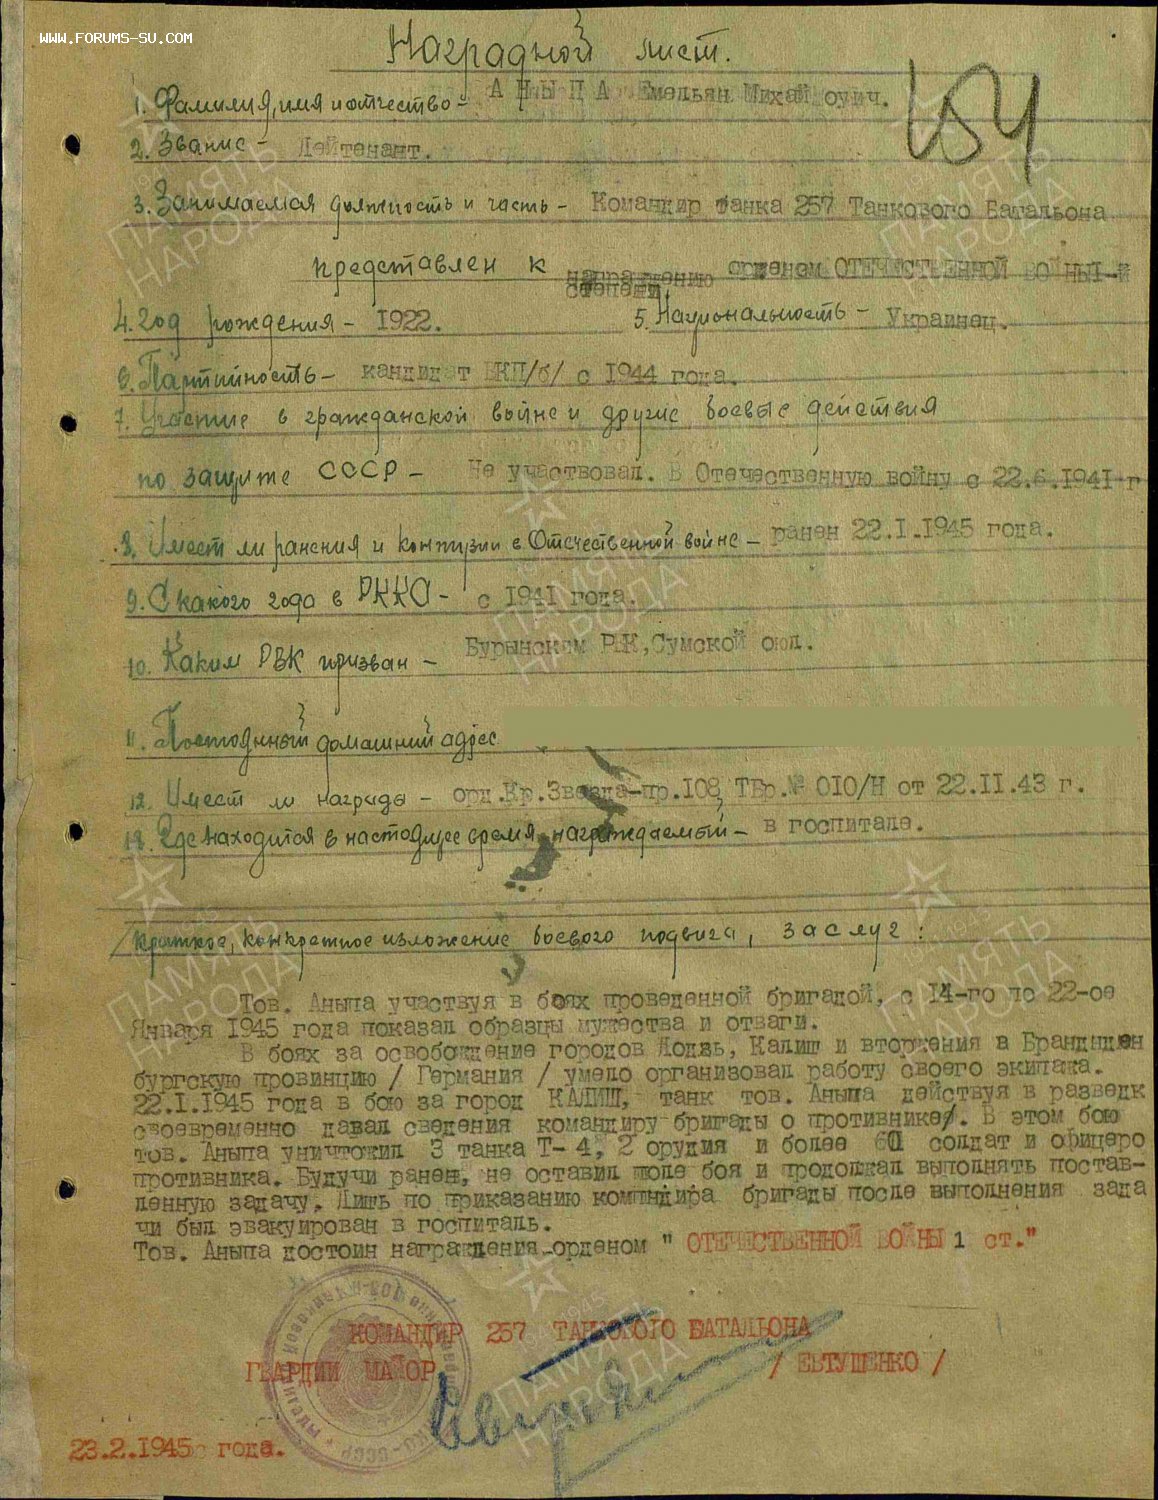 WWW.FORUMS-SU.COM
Наградной лист.
1. Фамилия, имя и отчество - АНЫПА Емельян Михайлович.
2. Звание - Лейтенант.
3. Занимаемая должность и часть - Командир танка 257 Танкового Батальона
представлен к награждению орденом ОТЕЧЕСТВЕННОЙ ВОЙНЫ I-й
степени.
4. Год рождения - 1922. 5. Национальность - Украинец.
6. Партийность - кандидат ВКП/б/ с 1944 года.
7. Участие в гражданской войне и другие боевые действия
по защите СССР - Не участвовал. В Отечественную войну с 22.6.1941 г
8. Имеет ли ранения и контузии в Отечественной войне - ранен 22.I.1945 года.
9. С какого года в РККА - с 1941 года.
10. Каким РВК призван - Бурынским РВК, Сумской обл.
11. Постоянный домашний адрес
12. Имеет ли награды - орд. Кр. Звезда - пр. 108 ТБр. № 010/Н от 22.II.43 г.
13. Где находится в настоящее время награждаемый - в госпитале.
Краткое, конкретное изложение боевого подвига, заслуг:
Тов. Аныпа участвуя в боях проведенной бригадой, с 14-го по 22-ое
Января 1945 года показал образцы мужества и отваги.
В боях за освобождение городов Лодзь, Калиш и вторжения в
бургскую провинцию / Германия / умело организовал работу своего экипажа.
22.I.1945 года в бою за город КАЛИШ, танк тов. Аныпа действуя в разведк
своевременно давал сведения командиру бригады о противнике. В этом бою
тов. Аныпа уничтожил 3 танка Т-4, 2 орудия и более 60 солдат и офицеро
противника. Будучи ранен, не оставил поле боя и продолжал выполнять постав-
ленную задачу. Лишь по приказанию командира бригады после выполнения зада
чи был эвакуирован в госпиталь.
Тов. Аныпа достоин награждения орденом " ОТЕЧЕСТВЕННОЙ ВОЙНЫ 1 ст."
КОМАНДИР 257 ТАНКОВОГО БАТАЛЬОНА
ГВАРДИИ МАЙОР / ЕВТУШЕНКО /
23.2.1945 года.
ПАМЯТЬ НАРОДА